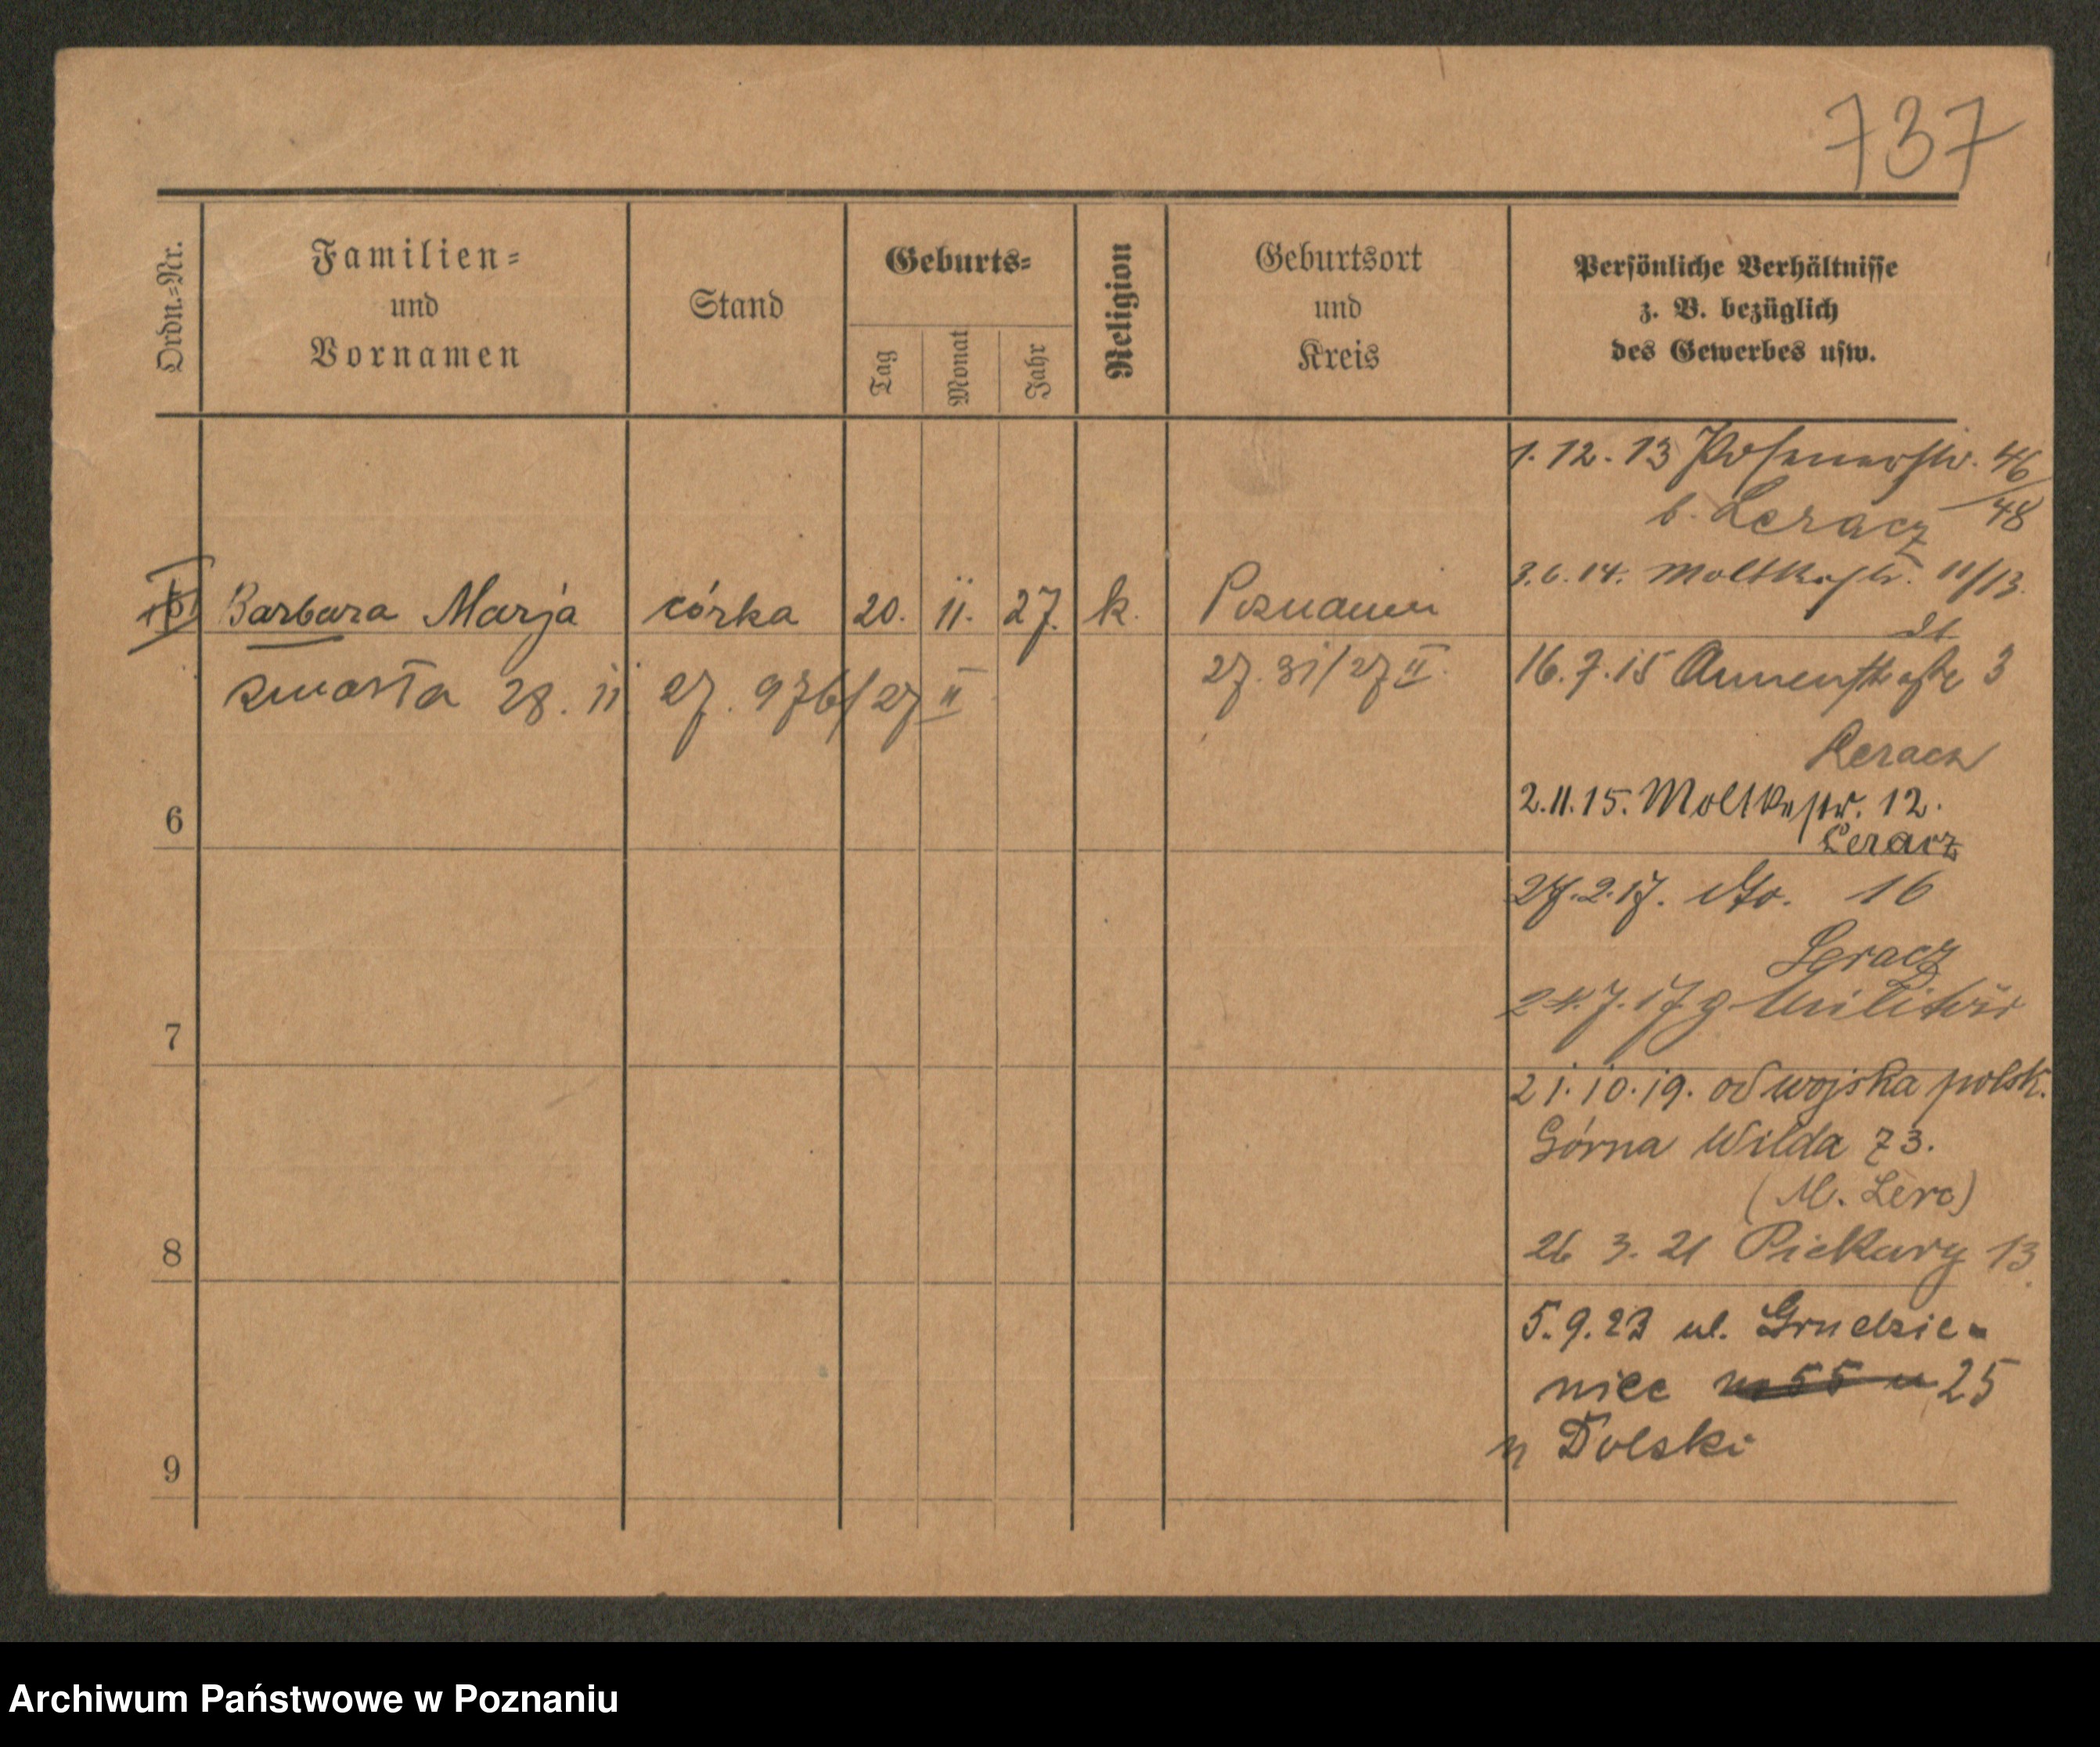 737
Ordn.=Nr.
Familien=
und
Vornamen
Stand
Geburts=
Tag
Monat
Jahr
Religion
Geburtsort
und
Kreis
Persönliche Verhältnisse
z. B. bezüglich
des Gewerbes usw.
1.12.13 Posenerstr. 46/48
b. Leracz
3.6.14. Moltkestr. 11/13.
Barbara Marja córka 20. 11. 27. k.
zmarła 28. 11 27. 976/27 II
27. 31/27 II.
16.7.15 3
Leracz
2.11.15. Moltkestr. 12.
Leracz
6
27.2.17. dto. 16
Leracz
24.7.17 z. Militär
7
21.10.19. od wojska polsk.
Górna Wilda 73.
(M. Lerc)
26 3. 21 Piekary 13.
8
5.9.23 ul. Grudzie=
niec 25
u Dolski
9
Archiwum Państwowe w Poznaniu